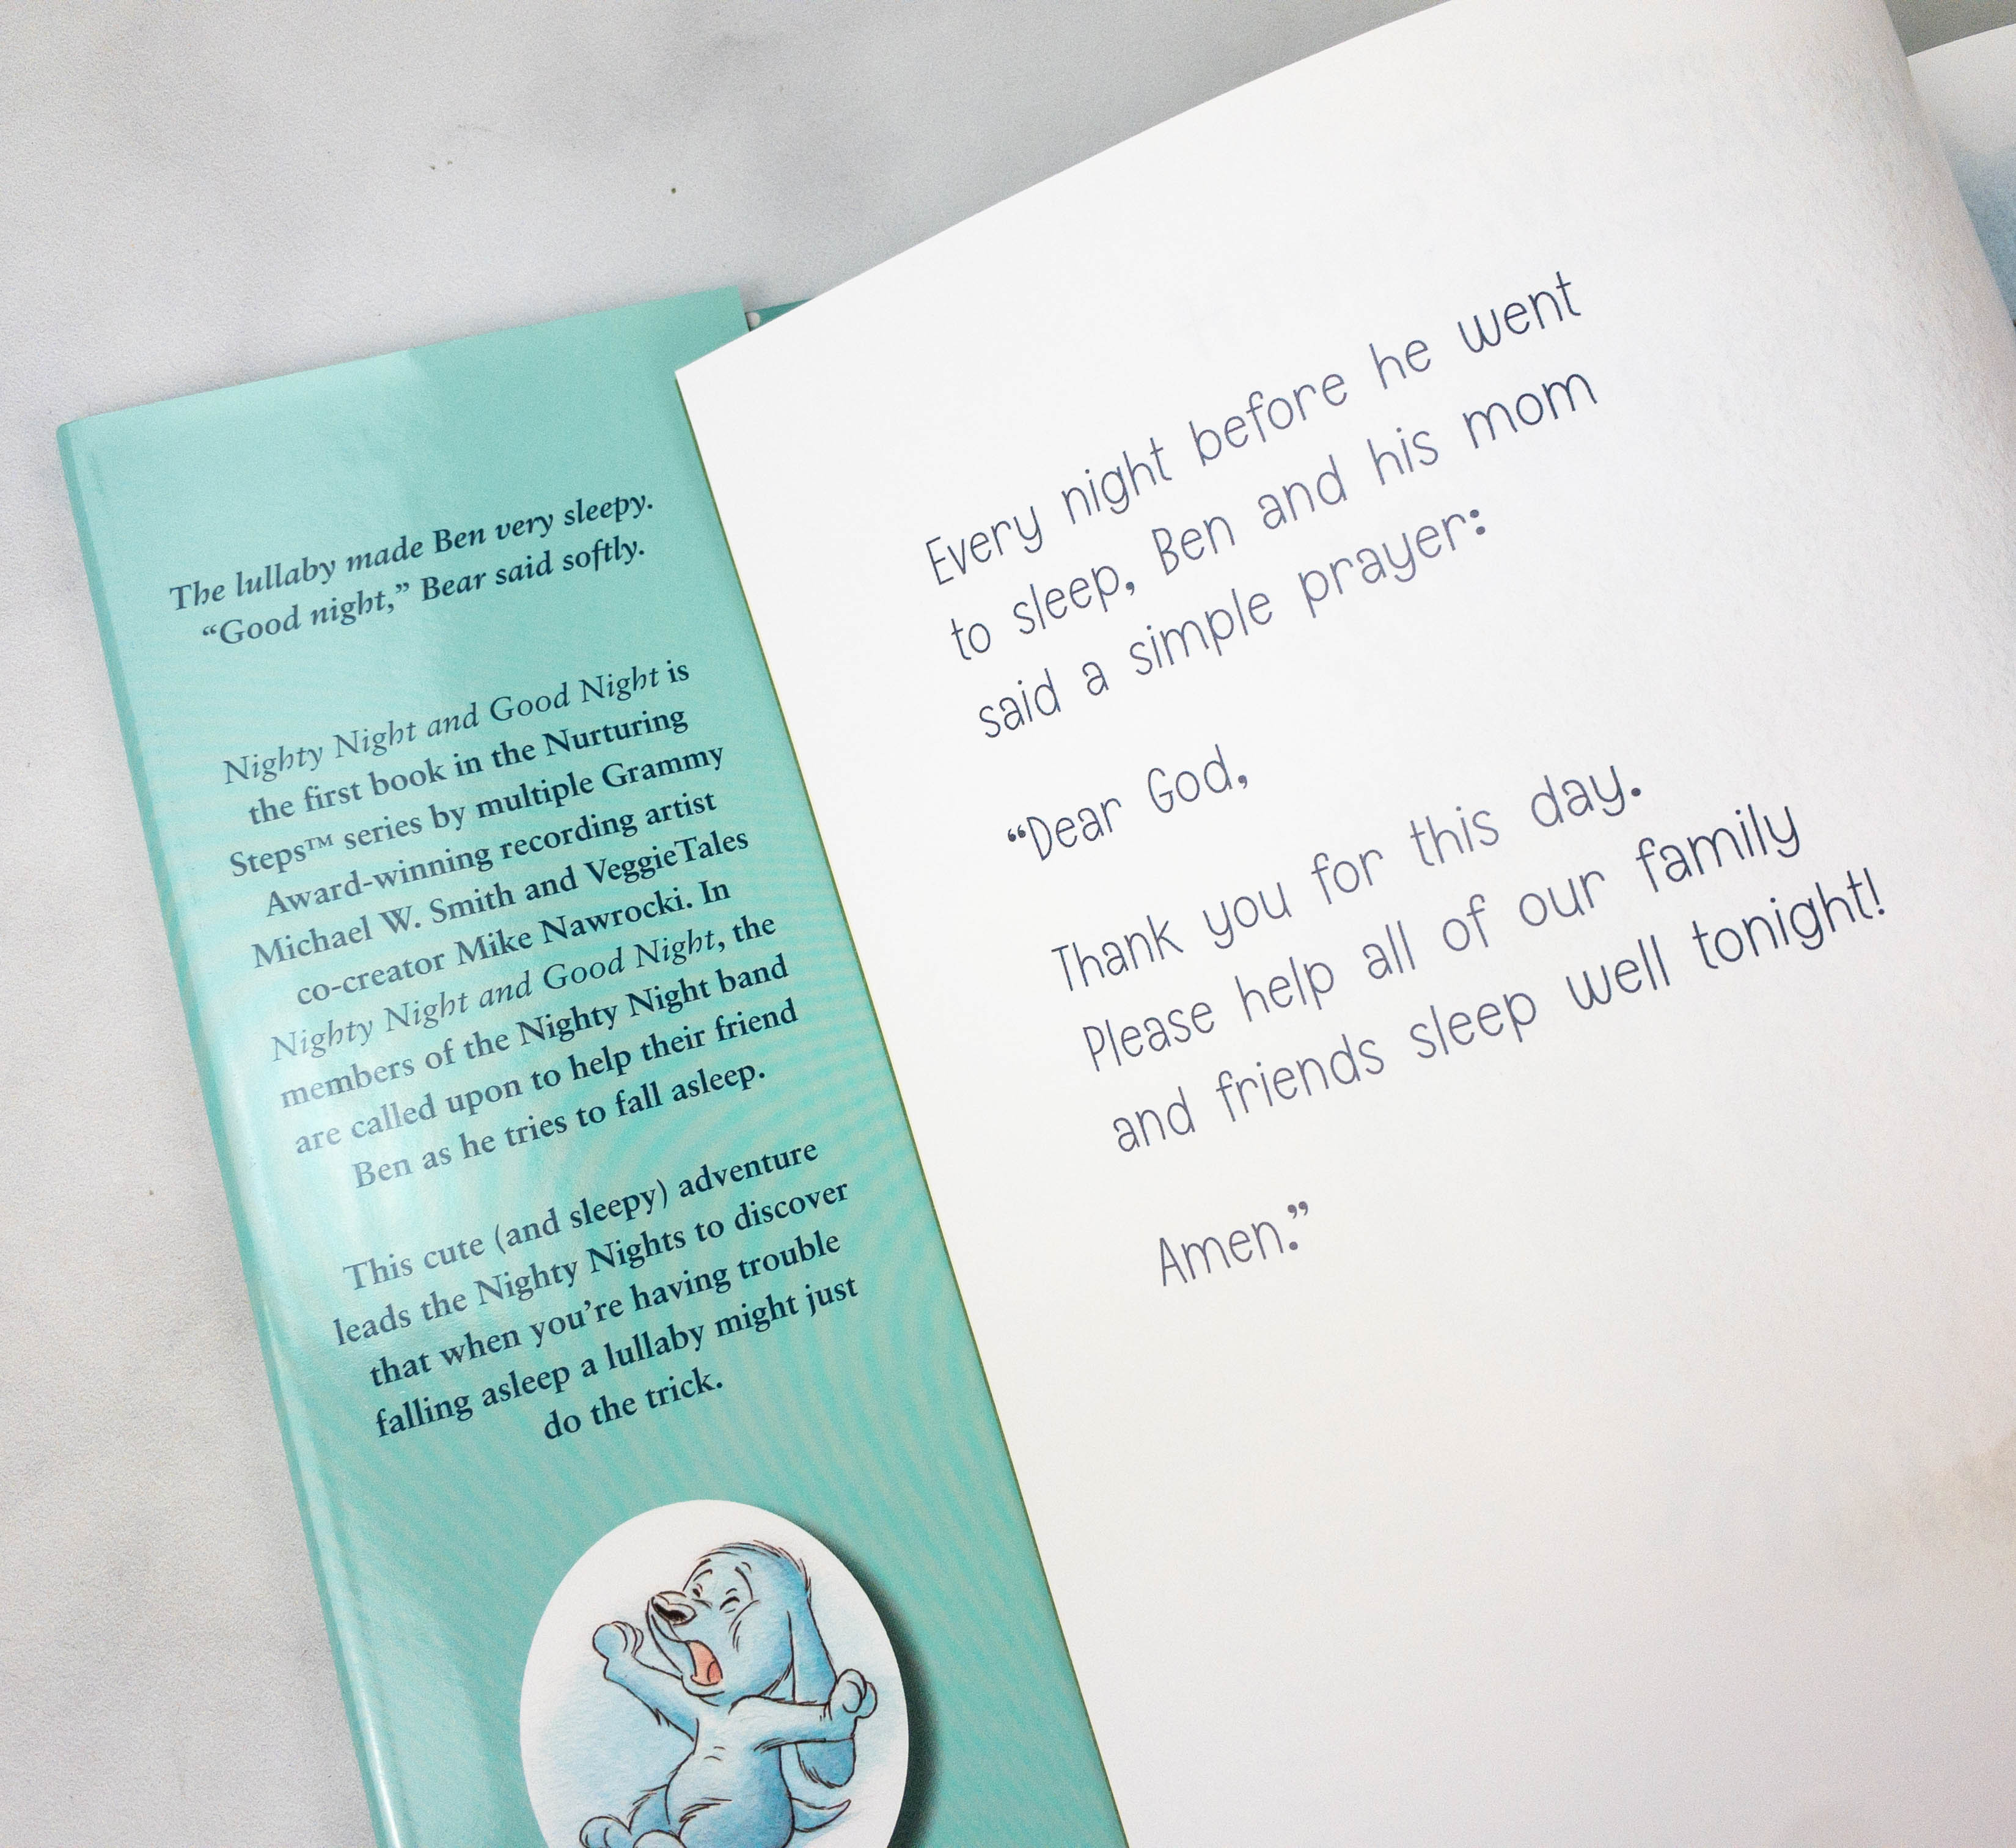 The lullaby made Ben very sleepy.
“Good night,” Bear said softly.
Nighty Night and Good Night is
the first book in the Nurturing
Steps™ series by multiple Grammy
Award-winning recording artist
Michael W. Smith and VeggieTales
co-creator Mike Nawrocki. In
Nighty Night and Good Night, the
members of the Nighty Night band
are called upon to help their friend
Ben as he tries to fall asleep.
This cute (and sleepy) adventure
leads the Nighty Nights to discover
that when you’re having trouble
falling asleep a lullaby might just
do the trick.
Every night before he went
to sleep, Ben and his mom
said a simple prayer:
“Dear God,
Thank you for this day.
Please help all of our family
and friends sleep well tonight!
Amen.”